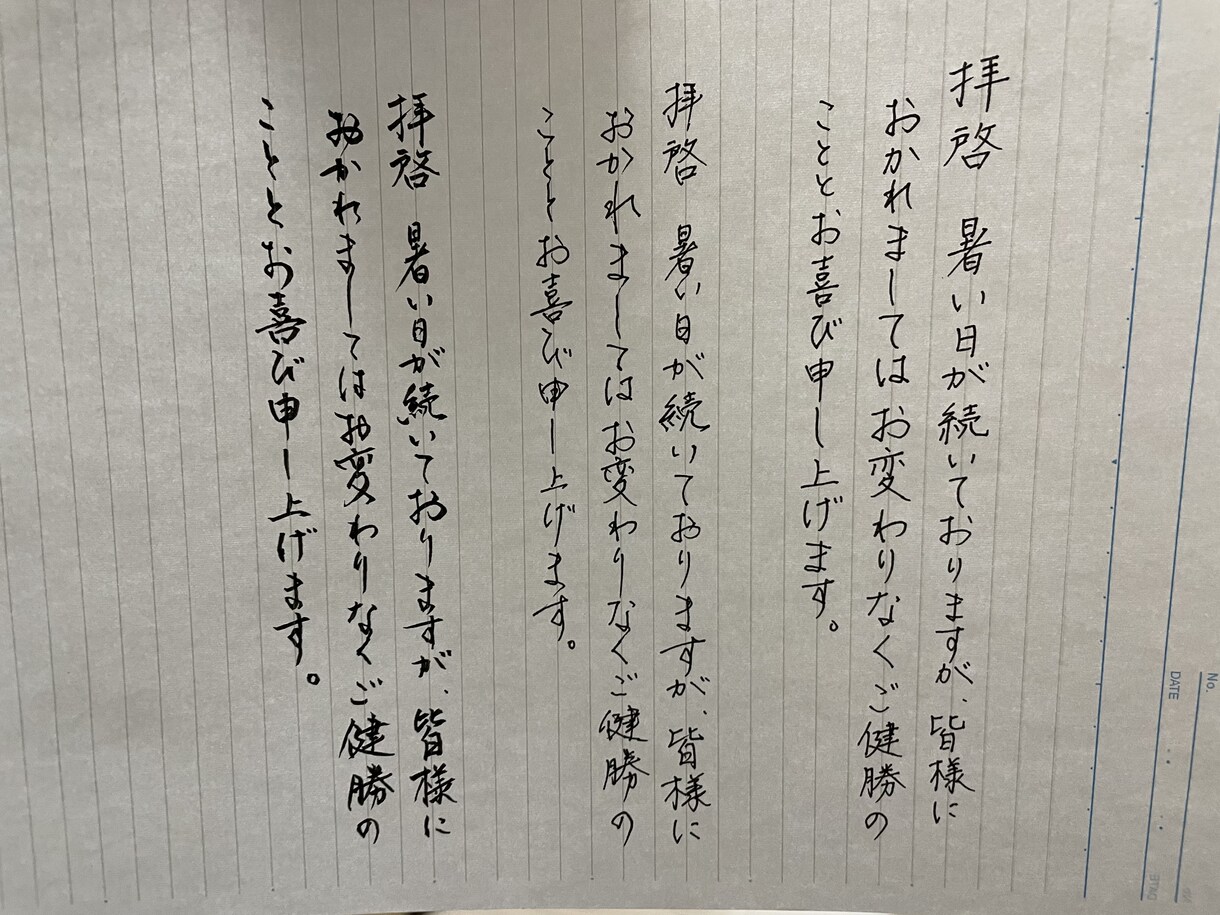 拝啓 暑い日が続いておりますが、皆様に
おかれましてはお変わりなくご健勝の
こととお喜び申し上げます。
拝啓 暑い日が続いておりますが、皆様に
おかれましてはお変わりなくご健勝の
こととお喜び申し上げます。
拝啓 暑い日が続いておりますが、皆様に
おかれましてはお変わりなくご健勝の
こととお喜び申し上げます。
No.
DATE